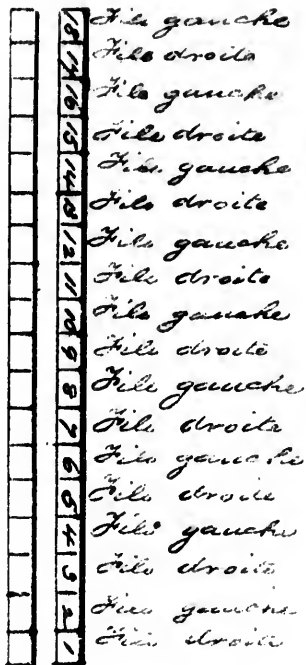 18 File gauche
17 File droite
16 File gauche
15 File droite
14 File gauche
13 File droite
12 File gauche
11 File droite
10 File gauche
9 File droite
8 File gauche
7 File droite
6 File gauche
5 File droite
4 File gauche
3 File droite
2 File gauche
1 File droite